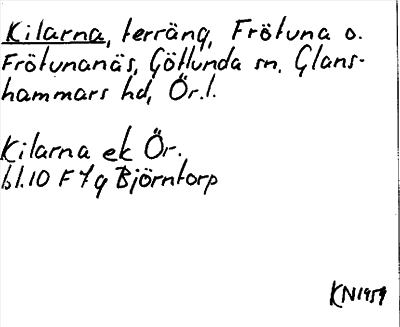 Kilarna, terräng, Frötuna o.
Frötunanäs, Götlunda sn, Glans-
hammars hd, Ör.l.
Kilarna ek Ör.
bl.10 F 7 g Björntorp
KN1959